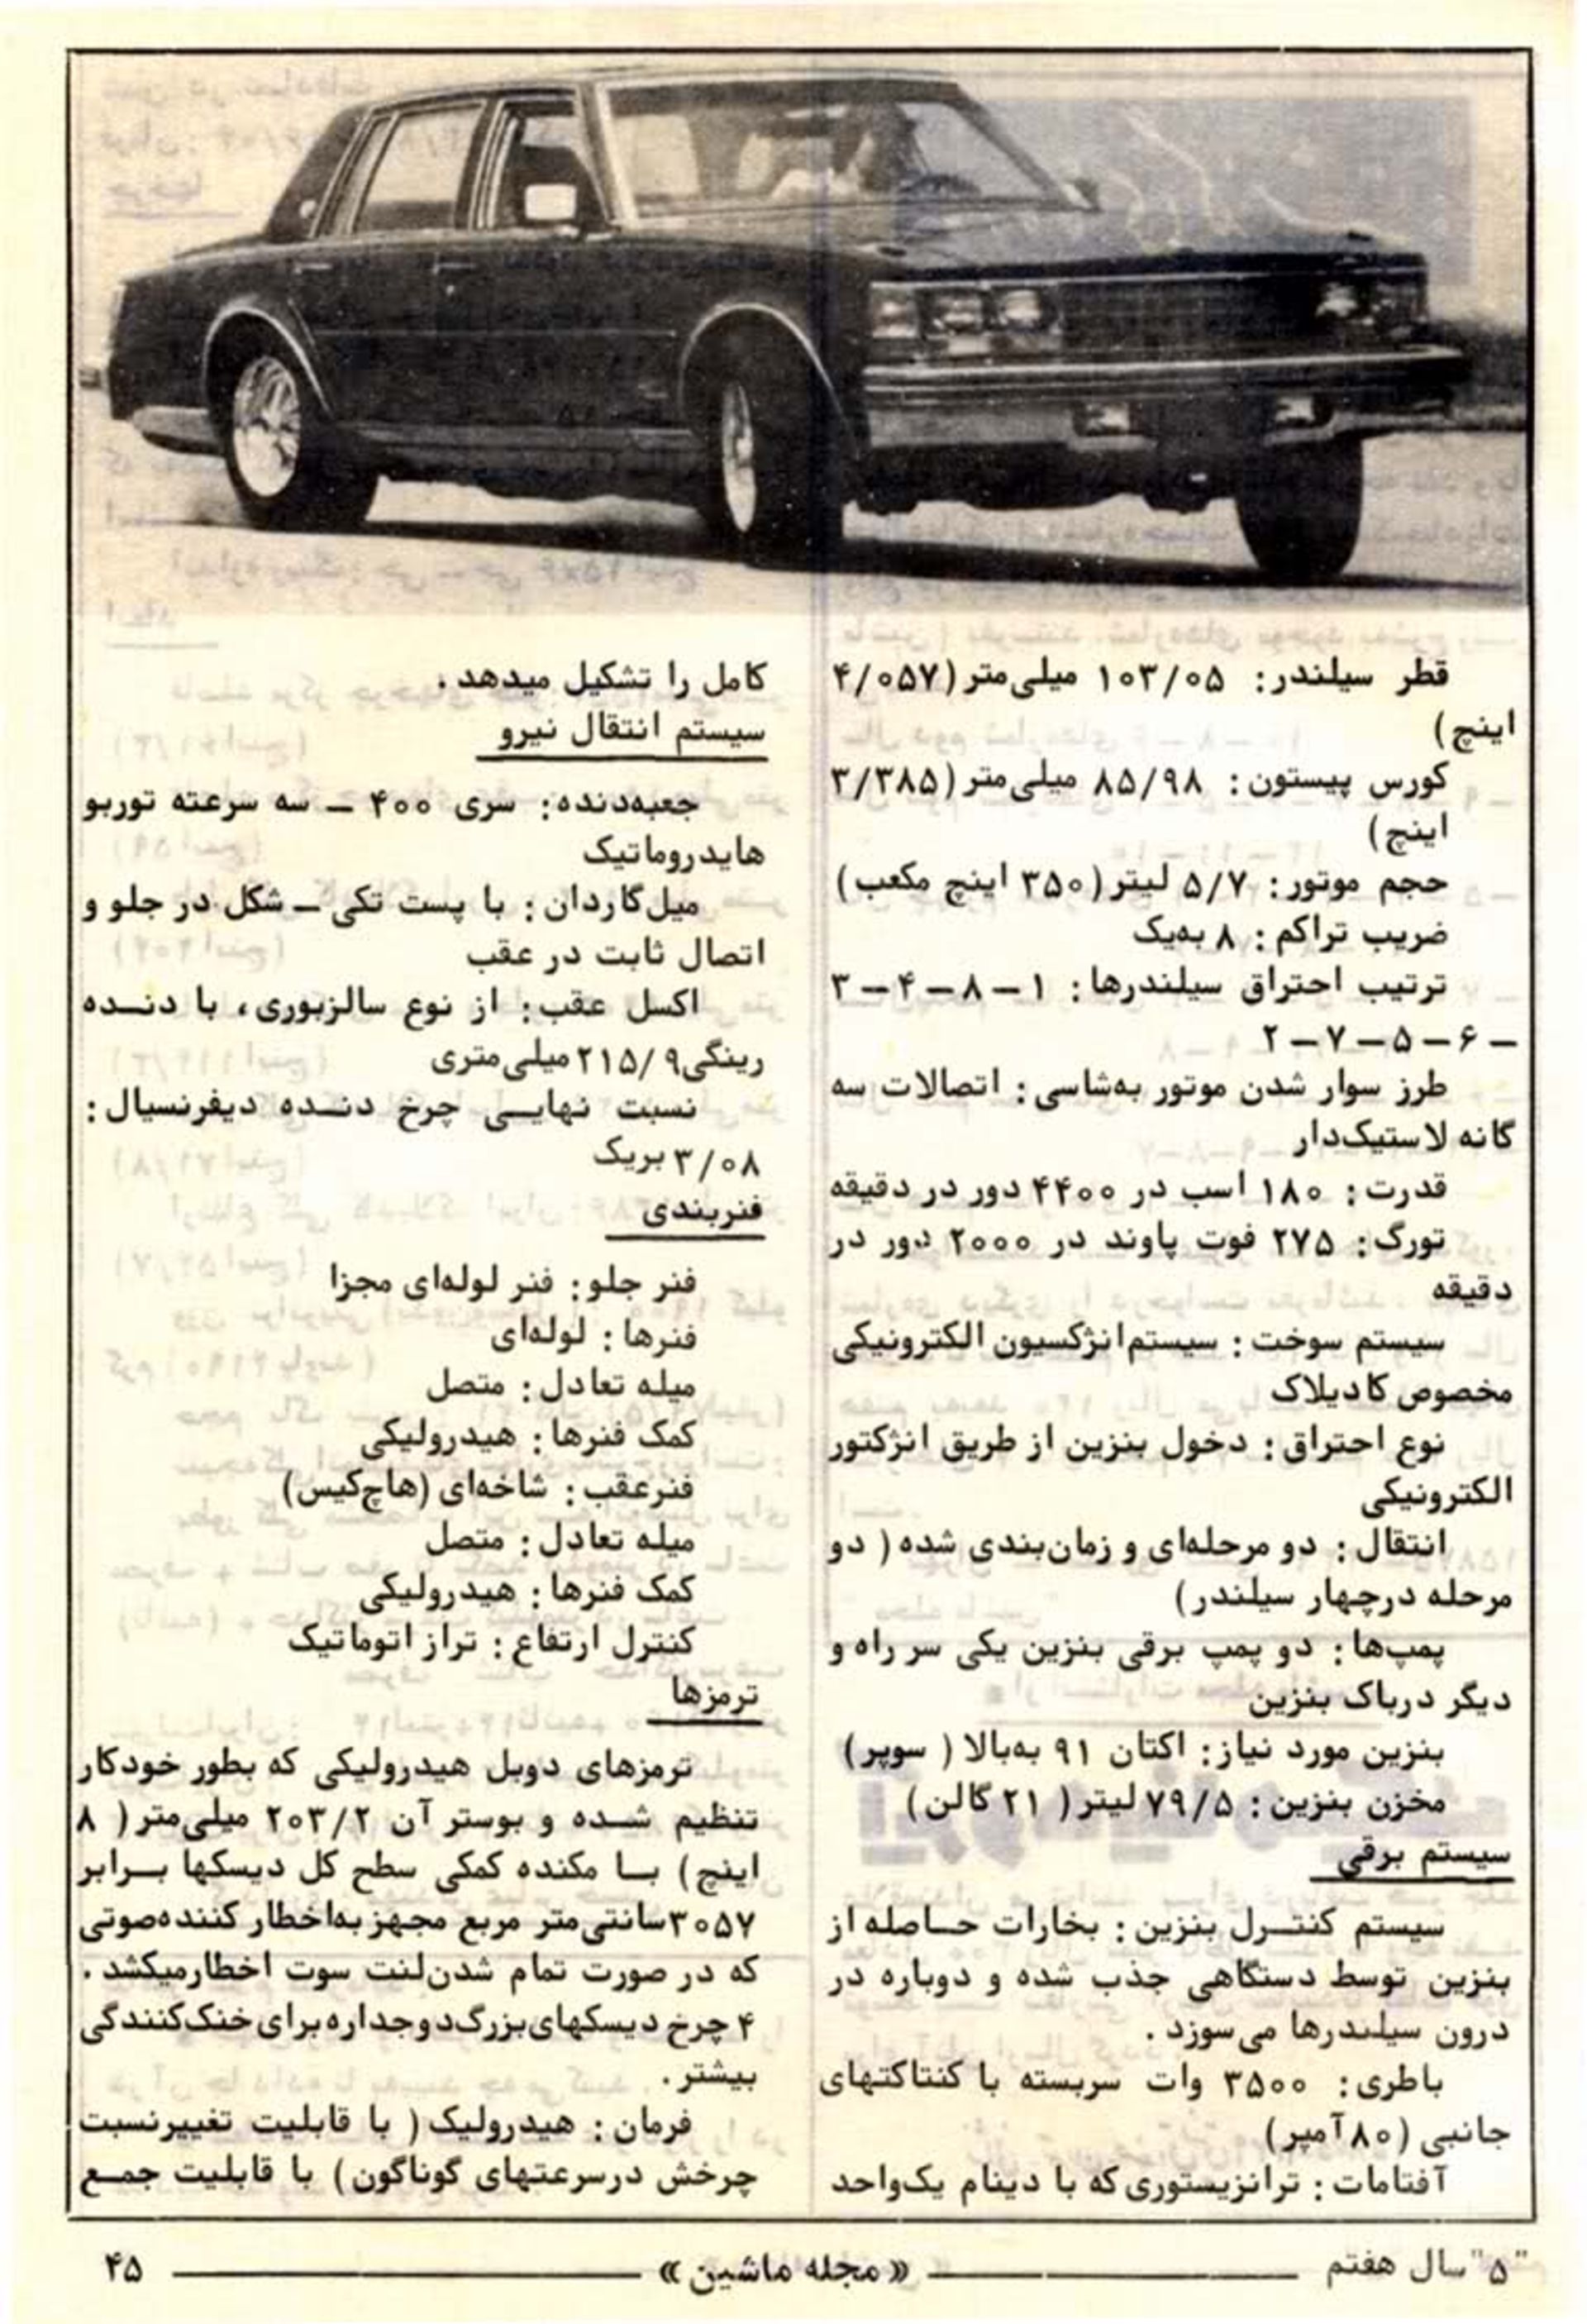 قطر سیلندر: ۱۰۳/۰۵ میلی‌متر (۴/۰۵۷
اینچ)
کورس پیستون: ۸۵/۹۸ میلی‌متر (۳/۳۸۵
اینچ)
حجم موتور: ۵/۷ لیتر (۳۵۰ اینچ مکعب)
ضریب تراکم: ۸ به‌یک
ترتیب احتراق سیلندرها: ۱ – ۸ – ۴ – ۳
– ۶ – ۵ – ۷ – ۲
طرز سوار شدن موتور به‌شاسی: اتصالات سه
گانه لاستیک‌دار
قدرت: ۱۸۰ اسب در ۴۴۰۰ دور در دقیقه
تورگ: ۲۷۵ فوت پاوند در ۲۰۰۰ دور در
دقیقه
سیستم سوخت: سیستم انژکسیون الکترونیکی
مخصوص کادیلاک
نوع احتراق: دخول بنزین از طریق انژکتور
الکترونیکی
انتقال: دو مرحله‌ای و زمان‌بندی شده ( دو
مرحله درچهار سیلندر)
پمپ‌ها: دو پمپ برقی بنزین یکی سر راه و
دیگر درباک بنزین
بنزین مورد نیاز: اکتان ۹۱ به‌بالا ( سوپر)
مخزن بنزین: ۷۹/۵ لیتر ( ۲۱ گالن)
سیستم برقی
سیستم کنترل بنزین: بخارات حاصله از
بنزین توسط دستگاهی جذب شده و دوباره در
درون سیلندرها می‌سوزد.
باطری: ۳۵۰۰ وات سربسته با کنتاکتهای
جانبی (۸۰ آمپر)
آفتامات: ترانزیستوری که با دینام یک‌واحد
کامل را تشکیل میدهد.
سیستم انتقال نیرو
جعبه‌دنده: سری ۴۰۰ – سه سرعته توربو
هایدروماتیک
میل‌گاردان: با پست تکی – شکل در جلو و
اتصال ثابت در عقب
اکسل عقب: از نوع سالزبوری، با دنده
رینگی ۲۱۵/۹ میلی‌متری
نسبت نهایی چرخ دنده دیفرنسیال:
۳/۰۸ بریک
فنربندی
فنر جلو: فنر لوله‌ای مجزا
فنرها: لوله‌ای
میله تعادل: متصل
کمک فنرها: هیدرولیکی
فنرعقب: شاخه‌ای (هاچ‌کیس)
میله تعادل: متصل
کمک فنرها: هیدرولیکی
کنترل ارتفاع: تراز اتوماتیک
ترمزها
ترمزهای دوبل هیدرولیکی که بطور خودکار
تنظیم شده و بوستر آن ۲۰۳/۲ میلی‌متر ( ۸
اینچ) با مکنده کمکی سطح کل دیسکها برابر
۳۰۵۷ سانتی‌متر مربع مجهز به‌اخطار کننده‌صوتی
که در صورت تمام شدن‌لنت سوت اخطارمیکشد.
۴ چرخ دیسکهای‌بزرگ‌دوجداره‌برای خنک‌کنندگی
بیشتر.
فرمان: هیدرولیک ( با قابلیت تغییرنسبت
چرخش درسرعتهای گوناگون) با قابلیت جمع
"۵" سال هفتم
«مجله ماشین»
۴۵